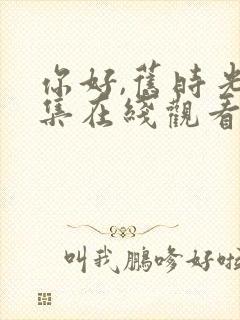 你好,舊時光
集在綫觀看
叫我鵬哆好啦